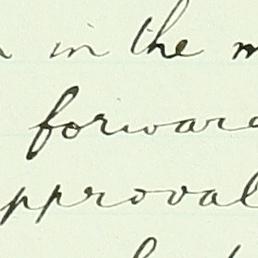 in the
forward
approval